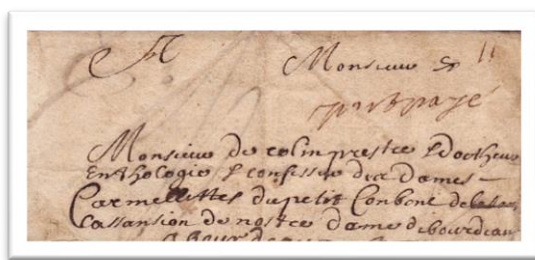 A Monsieur &
port payé
Monsieur de colin prestre & Doctheur
En thologie & confesseur des Dames
Carmellettes du petit Conbent de
Lassansion de nostre dame de bourdeau